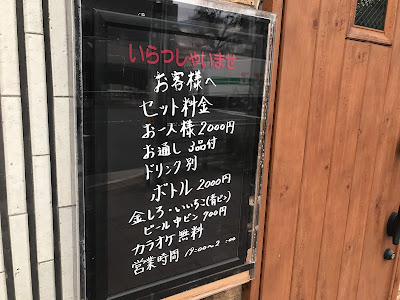 いらっしゃいませ
お客様へ
セット料金
お一人様 2000円
お通し 3品付
ドリンク別
ボトル 2000円
金しろ・いいちこ(青ビン)
ビール中ビン 700円
カラオケ無料
営業時間 19:00〜2:00